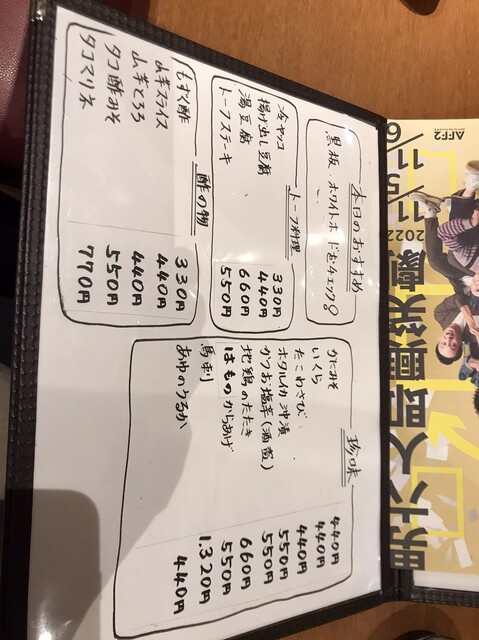 本日のおすすめ
黒板、ホワイトボードをチェック!
トーフ料理
冷ヤッコ 330円
揚げ出し豆腐 440円
湯豆腐 660円
トーフステーキ 550円
酢の物
もずく酢 330円
山芋スライス 440円
山芋とろろ 440円
タコ酢みそ 550円
タコマリネ 770円
珍味
かにみそ 440円
いくら 440円
たこわさび 440円
ホタルイカ沖漬 550円
かつお塩辛(酒盗) 550円
地鶏のたたき 660円
はものからあげ 550円
馬刺 1.320円
あゆのうるか 440円
AFF2